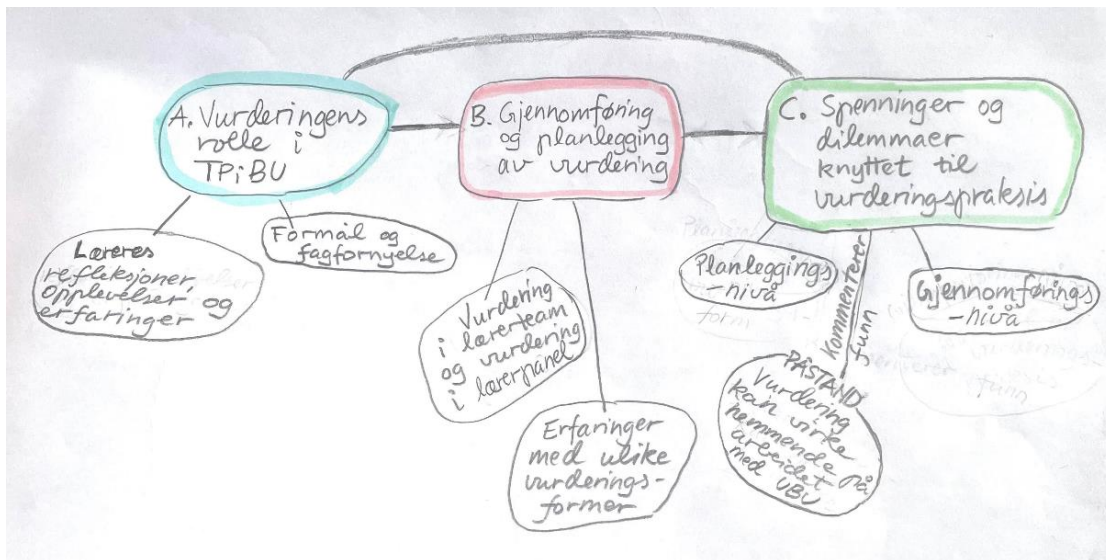 A. Vurderingens
rolle i
TPiBU
B. Gjennomføring
og planlegging
av vurdering
C. Spenninger og
dilemmaer
knyttet til
vurderingspraksis
Læreres
refleksjoner,
opplevelser og
erfaringer
Formål og
fagfornyelse
Vurdering
i lærerteam
og vurdering
i lærerpanel
Erfaringer
med ulike
vurderings-
former
Planleggings
-nivå
kommenterer
funn
PÅSTAND
Vurdering
kan virke
hemmende på
arbeidet
med UBU
Gjennomførings
-nivå